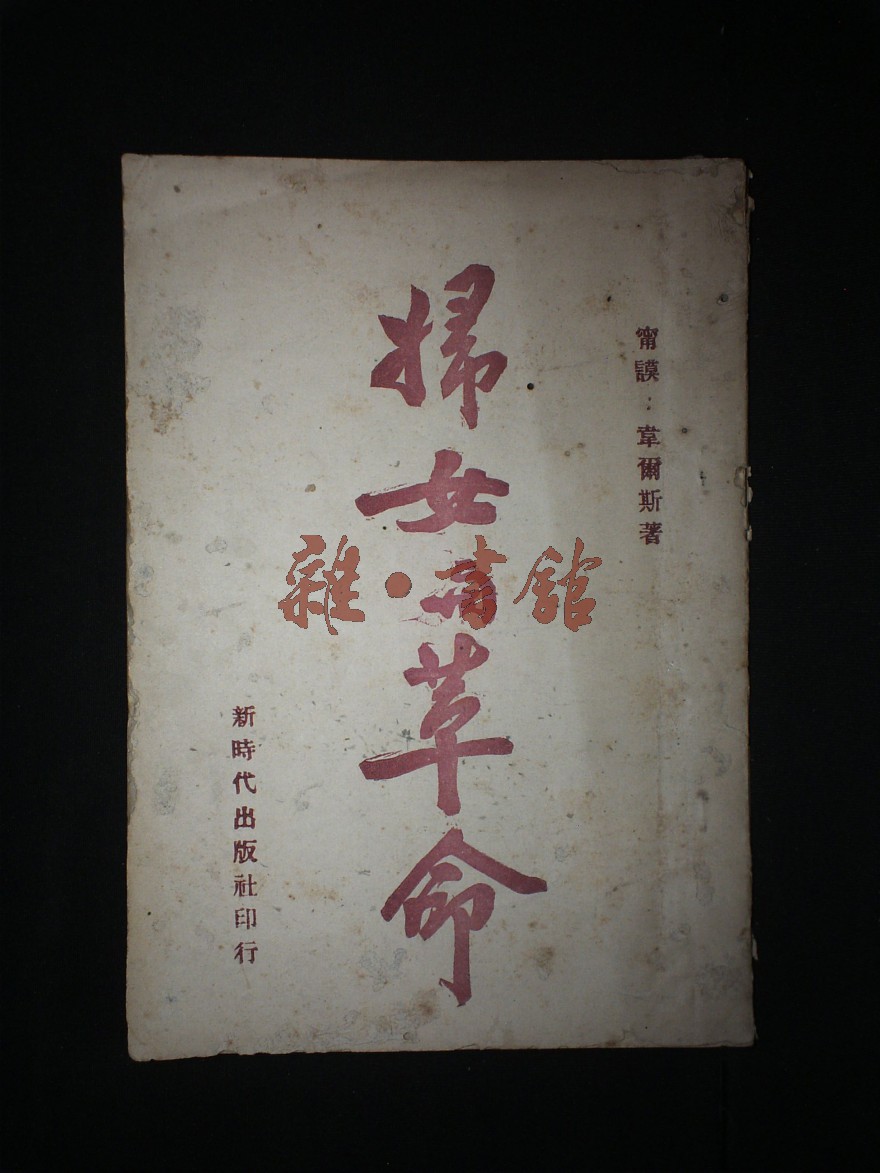 甯謨：韋爾斯著
婦女与革命
新時代出版社印行
雜·書館